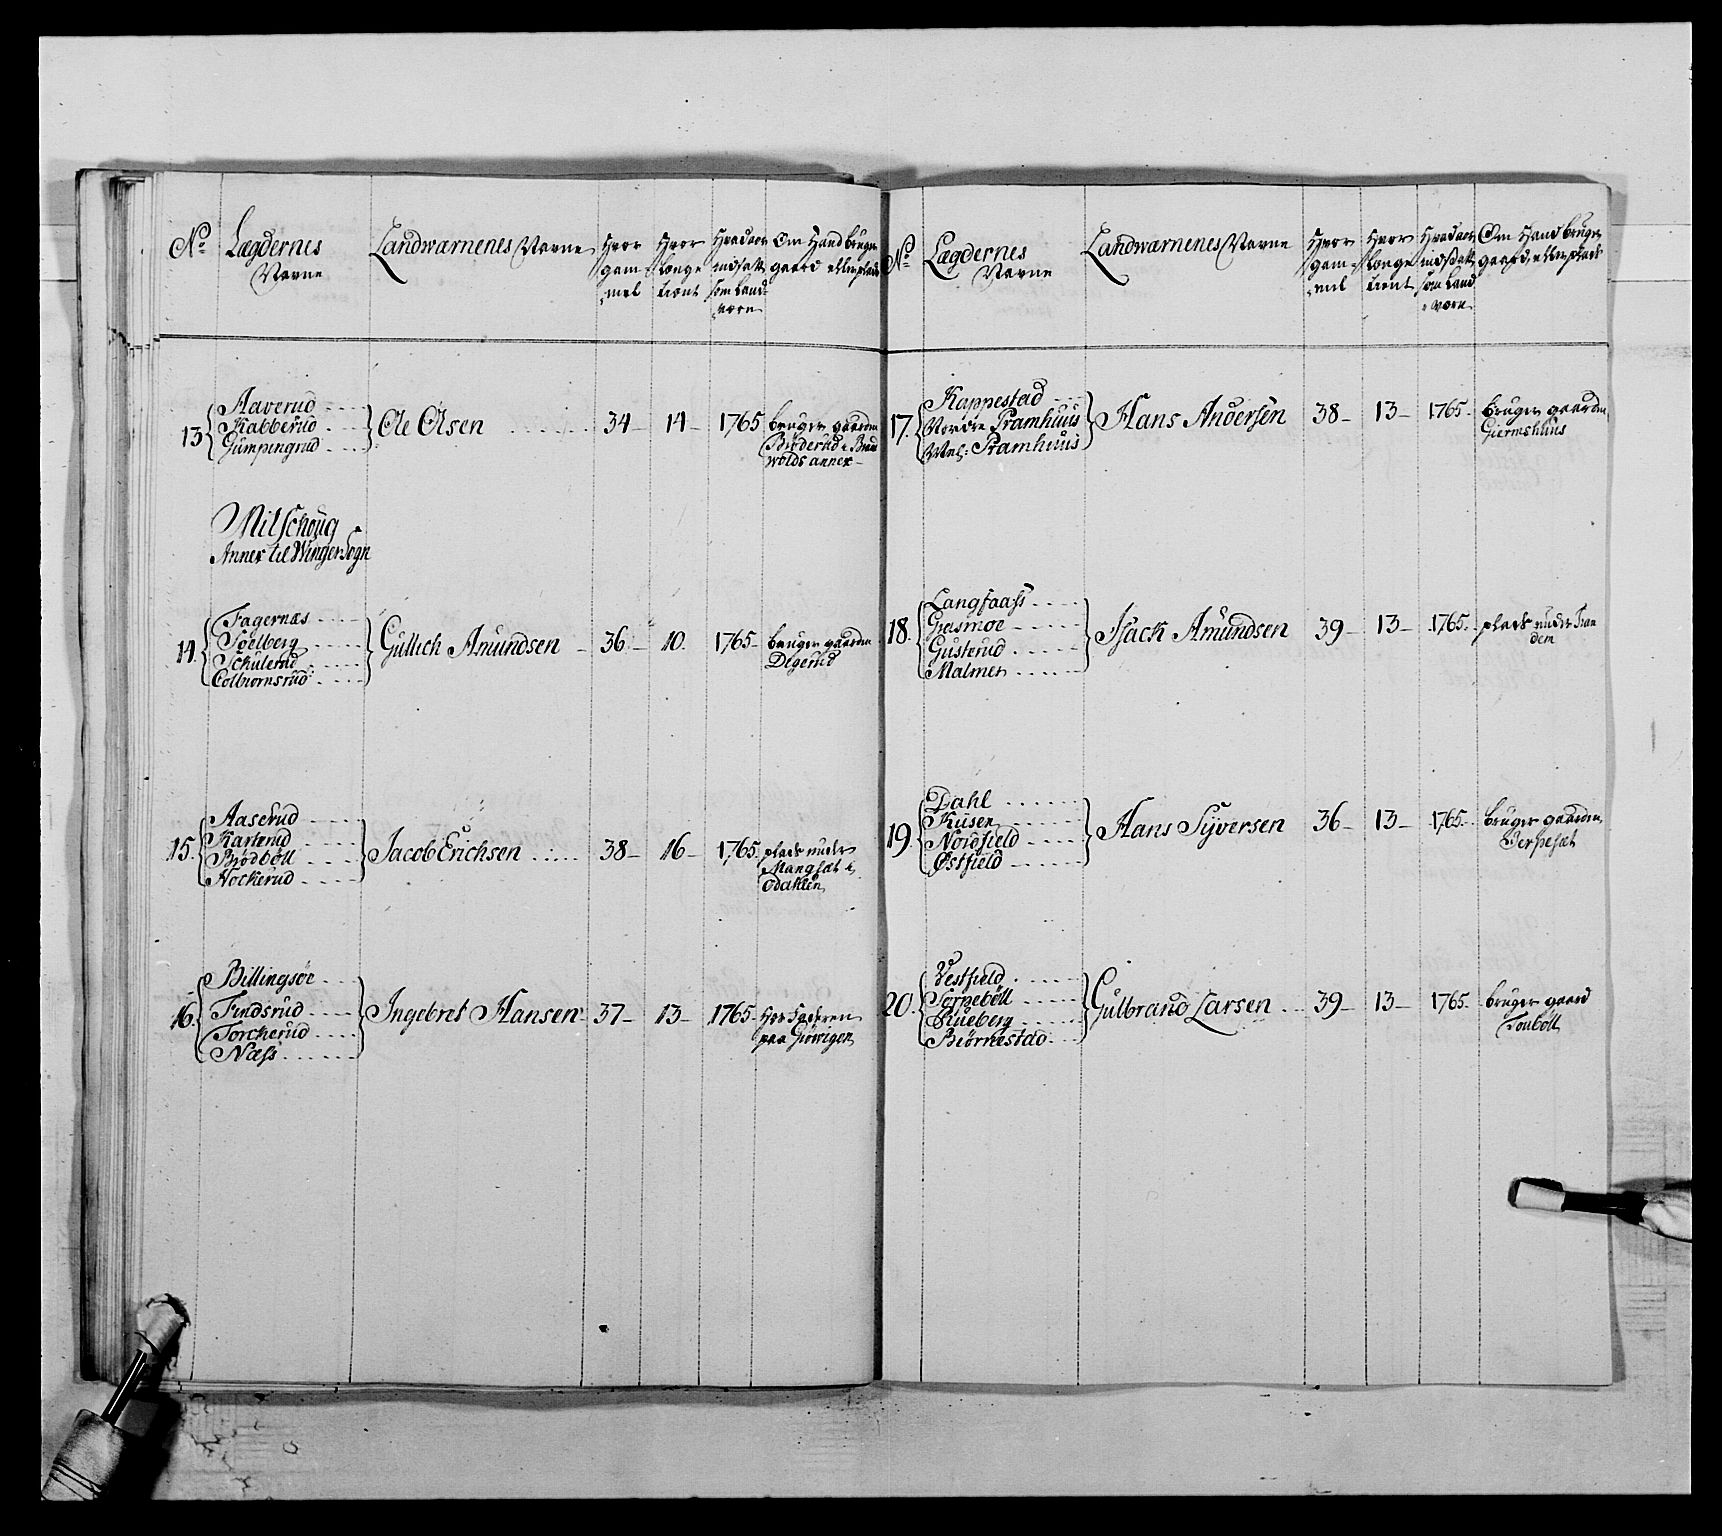 No
Lægdernes
Navne
Landwærnenes Navne
Hvor
gam-
mel
Hvor
længe
tient
Hvad aar
indsatt
som Land-
værn
Om Hand bruger
gaard eller plads
13
Haverud
Kabberud
Gumpingrud
Ole Olsen
34
14
1765
bruger gaarden
Broderud
wolds annex
Mitschoug
Annex til Winger Sogn
14.
Fagernæs
Soelberg
Schulerud
Colbiornsrud
Gullich Amundsen
36
10.
1765
bruger gaarden
Digerud
15.
Aaserud
Karterud
Brødbøll
Nockerud
Jacob Erichsen
38
16
1765.
plads under
Mangsæt i
Odahlen
16.
Billingsøe
Findsrud
Torckerud
Næss
Ingebret Hansen
37
13
1765.
Hos Faderen
paa Giøvigen
No
Lægdernes
Navne
Landwærnenes Navne
Hvor
gam-
mel
Hvor
længe
tient
Hvad aar
indsatt
som Land
værn
Om Hand bruger
gaard, eller plads
17.
Kappestad
Nordre Pramhuus
Vest: Pramhuus
Hans Andersen
38
13
1765.
bruger gaarden
Giermshuus
18.
Langfaass
Græsmoe
Gusterud
Malmer
Isack Amundsen
39
13
1765.
plads under
19.
Dahl
Kusen
Nordfield
Østfield
Hans Syversen
36
13
1765.
bruger gaarden,
Jerpesæt
20.
Vestfield
Torpebøll
Rueberg
Biørnestad
Gulbrand Larsen
39
13
1765.
bruger gaard
Toubøll